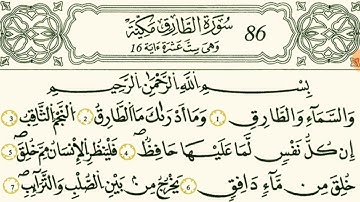 سورة الطارق مكية 86
وهى ست عشرة ءاية 16
بِسْمِ اللَّهِ الرَّحْمَٰنِ الرَّحِيمِ
وَالسَّمَآءِ وَالطَّارِقِ 1 وَمَآ أَدْرَىٰكَ مَا الطَّارِقُ 2 النَّجْمُ الثَّاقِبُ 3
إِن كُلُّ نَفْسٍ لَمَا عَلَيْهَا حَافِظٌ 4 فَلْيَنظُرِ الْإِنسَٰنُ مِمَّ خُلِقَ 5
خُلِقَ مِن مَّآءٍ دَافِقٍ 6 يَخْرُجُ مِنۢ بَيْنِ الصُّلْبِ وَالتَّرَآئِبِ 7